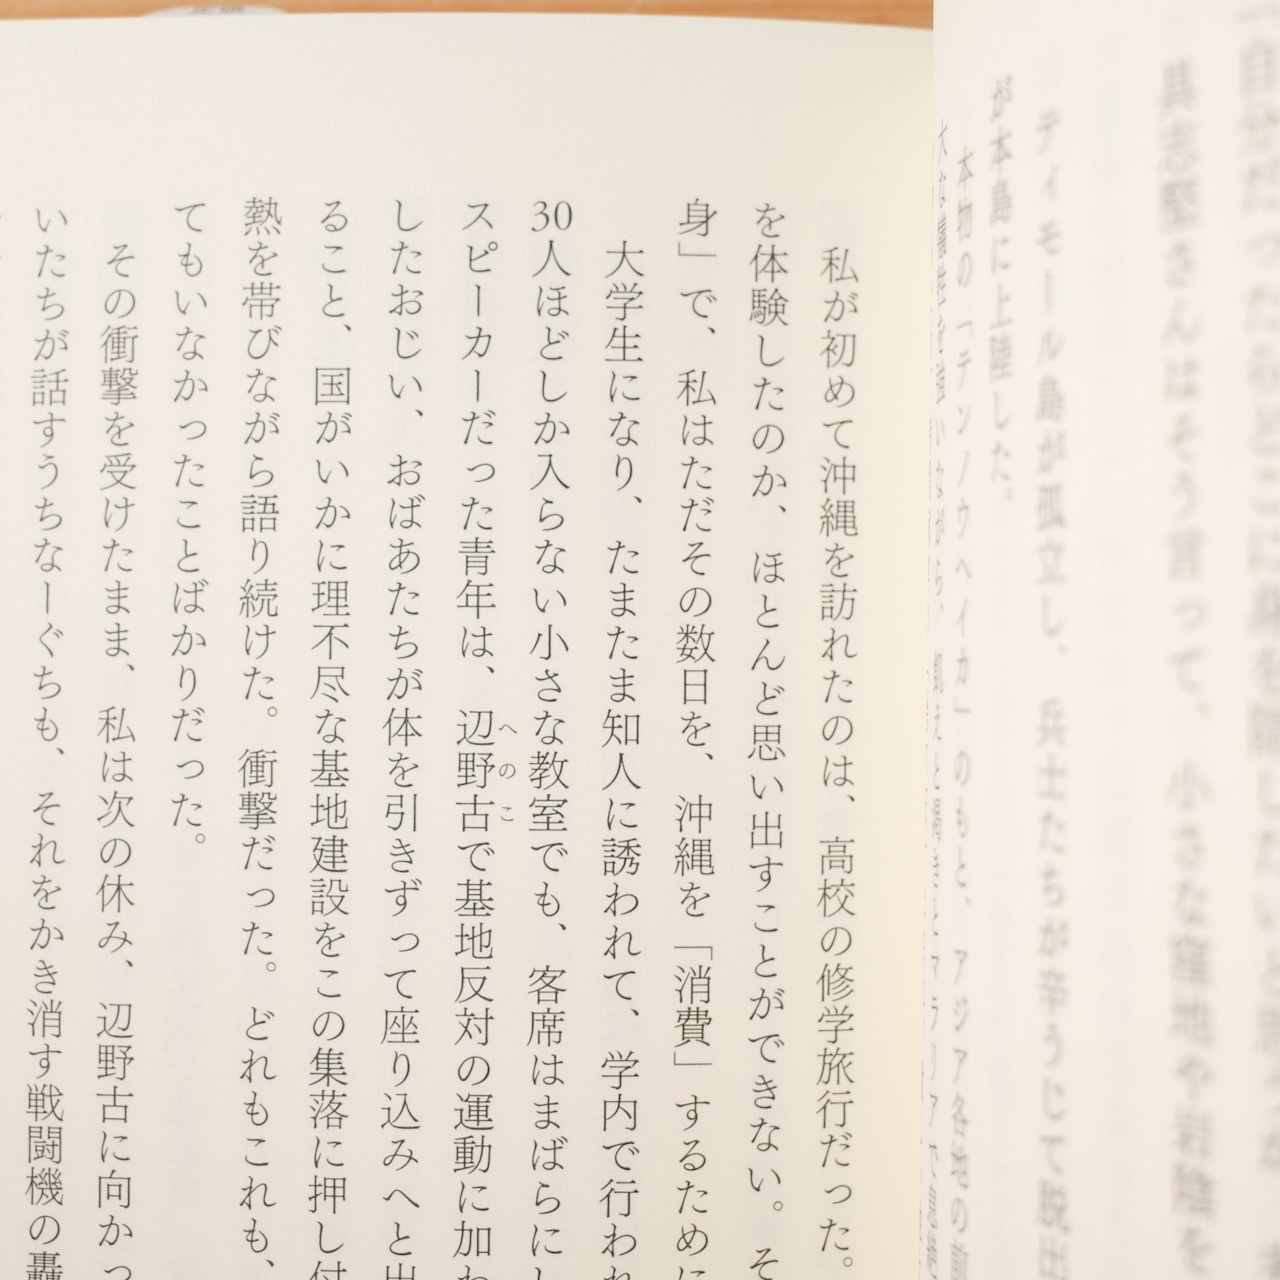 具志堅さんはそう言って、小さな窪地や岩陰を
ティモール島が孤立し、兵士たちが辛うじて脱出
が本島に上陸した。
本初の「テンノウヘイカ」のもと、アジア各地の前
大な犠牲を強いながら、飢えと渇きとマラリアで
私が初めて沖縄を訪れたのは、高校の修学旅行だった。
を体験したのか、ほとんど思い出すことができない。そ
身」で、私はただその数日を、沖縄を「消費」するために
大学生になり、たまたま知人に誘われて、学内で行われ
30人ほどしか入らない小さな教室でも、客席はまばらにし
スピーカーだった青年は、辺野古で基地反対の運動に加わ
へのこ
したおじい、おばあたちが体を引きずって座り込みへと出
ること、国がいかに理不尽な基地建設をこの集落に押し付
熱を帯びながら語り続けた。衝撃だった。どれもこれも、
てもいなかったことばかりだった。
その衝撃を受けたまま、私は次の休み、辺野古に向かっ
いたちが話すうちなーぐちも、それをかき消す戦闘機の轟